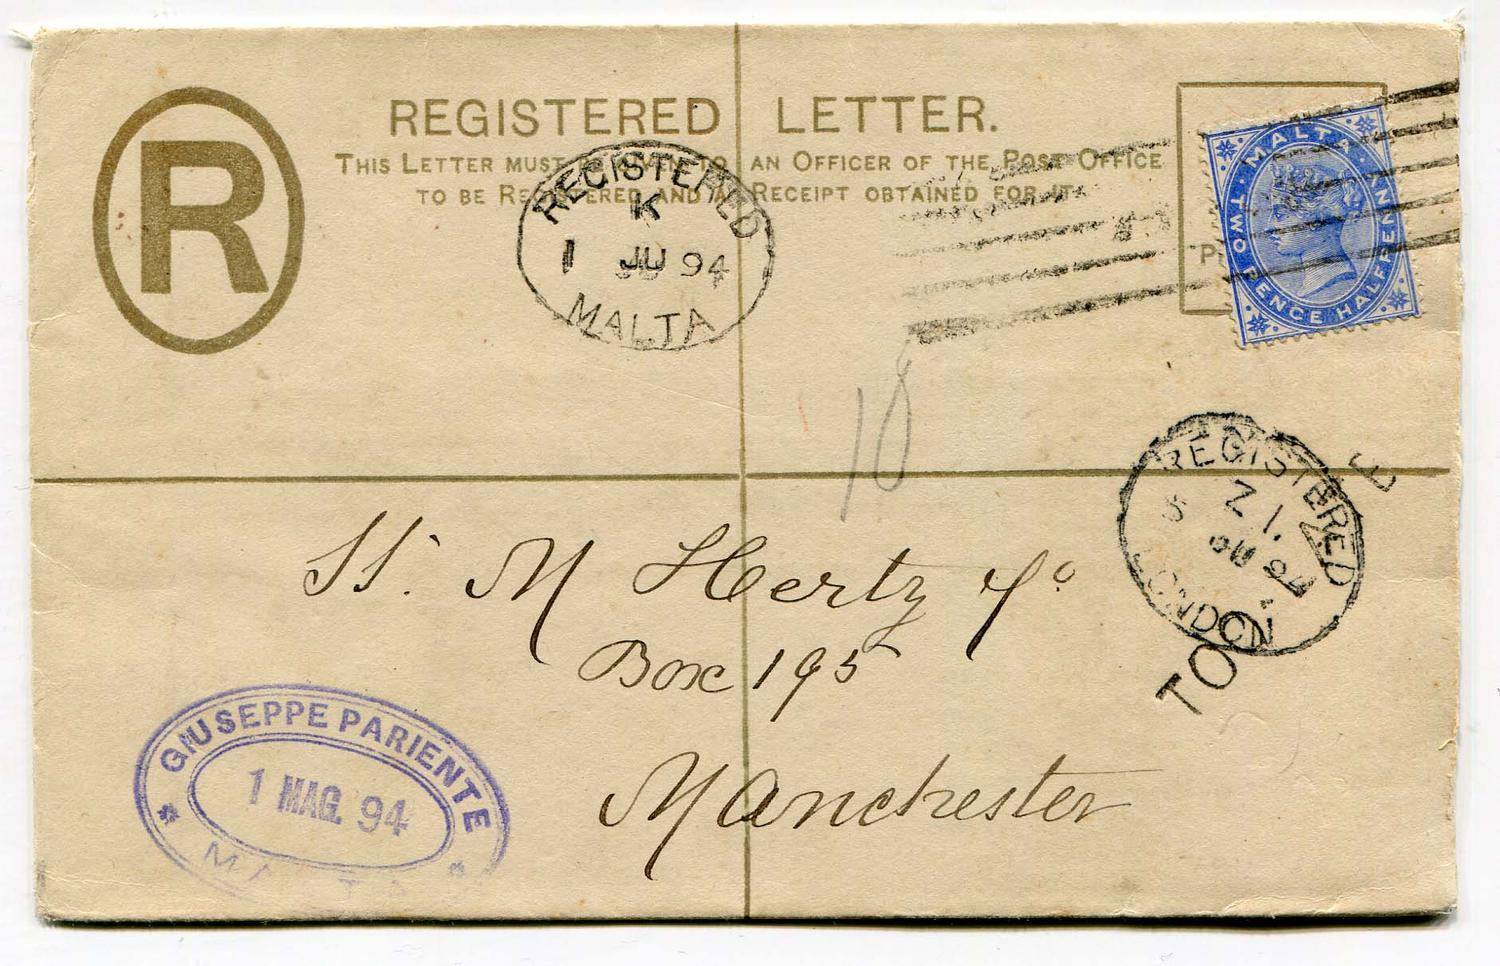 R
REGISTERED LETTER.
THIS LETTER MUST BE GIVEN TO AN OFFICER OF THE POST OFFICE
TO BE REGISTERED AND A RECEIPT OBTAINED FOR IT.
REGISTERED
K
1 JU 94
MALTA
MALTA
TWO PENCE HALFPENNY
18
REGISTERED
Z 1
94
LONDON
TOO
E
M Hertz & Co
Box 195
Manchester
GIUSEPPE PARIENTE
1 MAG. 94
MALTA